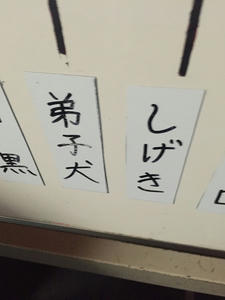 しげき
弟子犬
黒